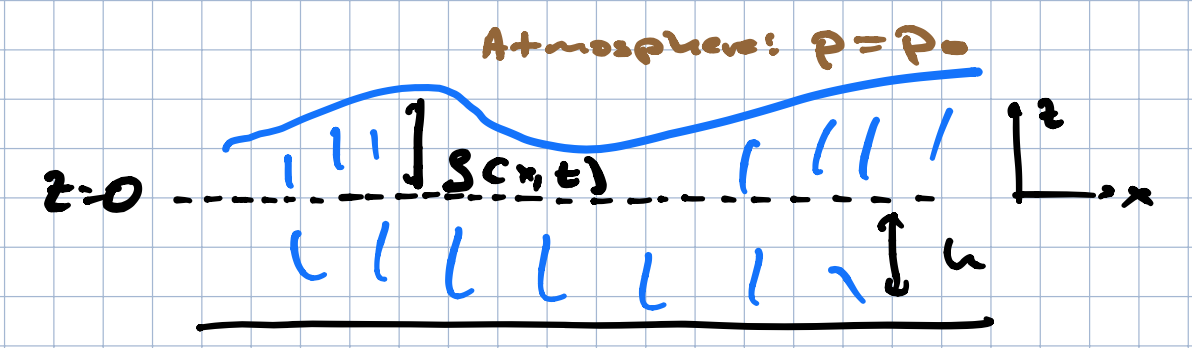 Atmosphere: p=p₀
z
ζ(x,t)
z=0
x
h